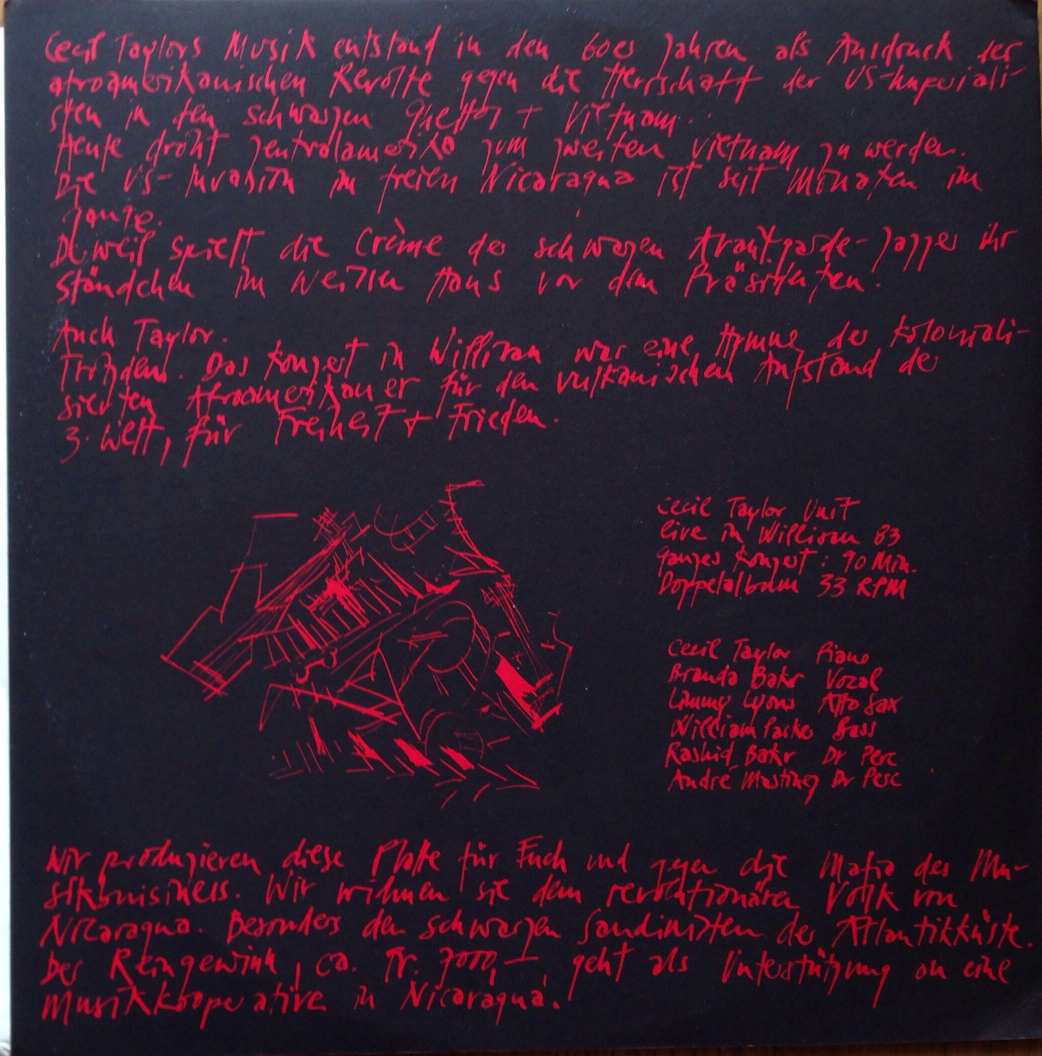 Cecil Taylors Musik entstand in den 60er Jahren als Ausdruck der
afroamerikanischen Revolte gegen die Herrschaft der US-Imperiali-
sten in den schwarzen Ghettos + Vietnam.
Heute droht Zentralamerika zum zweiten Vietnam zu werden.
Die US-Invasion im freien Nicaragua ist seit Monaten im
Gange.
Derweil spielt die Crème der schwarzen Avantgarde-Jazzer ihr
Ständchen im Weissen Haus vor dem Präsidenten.
Auch Taylor.
Trotzdem. Das Konzert in Willisau war eine Hymne der koloniali-
sierten Afroamerikaner für den vulkanischen Aufstand der
3. Welt, für Freiheit + Frieden.
Cecil Taylor Unit
live in Willisau 83
ganzes Konzert: 90 Min.
Doppelalbum 33 RPM
Cecil Taylor Piano
Brenda Bakr Vocal
Jimmy Lyons Alto Sax
William Parker Bass
Rashid Bakr Dr Perc
André Martinez Dr Perc
Wir produzieren diese Platte für Euch und gegen die Mafia des Mu-
sikbusiness. Wir widmen sie dem revolutionären Volk von
Nicaragua. Besonders den schwarzen Sandinisten der Atlantikküste.
Der Reingewinn, ca. Fr. 7000,– geht als Unterstützung an eine
Musikkooperative in Nicaragua.